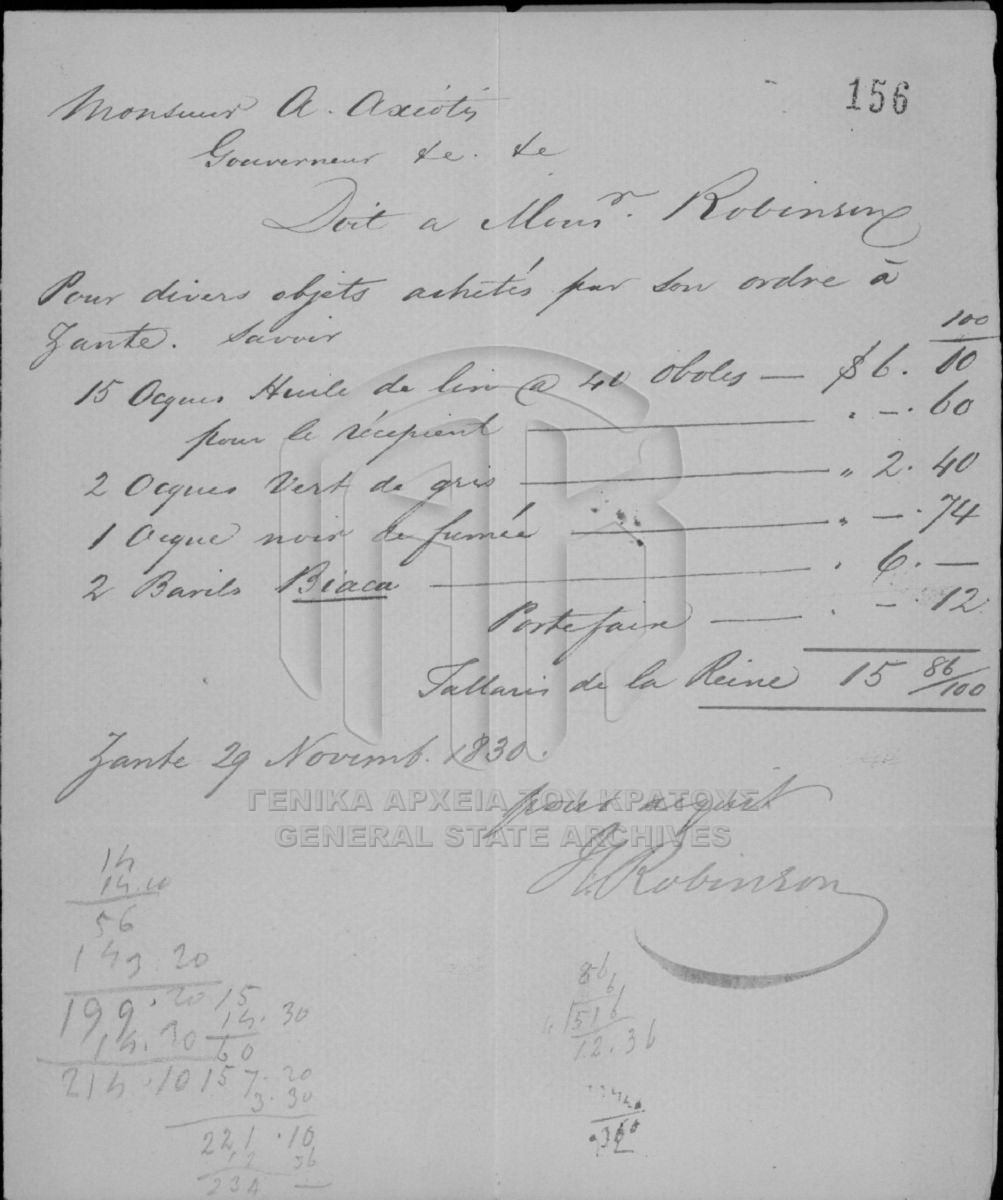 156
Monsieur A. Axiotis
Gouverneur &c. &c
Doit a Monsr. Robinson
Pour divers objets achétés par son ordre à
Zante. Savoir
100
15 Ocques Huile de lin @ 40 Oboles — $ 6. 00
pour le récipient — " —. 60
2 Ocques Vert de gris — " 2. 40
1 Ocque noir de fumée — " —. 74
2 Barils Biaca — " 6. —
Portefaix — " —. 12
Tallaris de la Reine 15 86/100
Zante 29 Novemb. 1830.
pour acquit
H. Robinson
ΓΕΝΙΚΑ ΑΡΧΕΙΑ ΤΟΥ ΚΡΑΤΟΥΣ
GENERAL STATE ARCHIVES
14
14.10
56
143.20
199.20
14.30
214.10
15
14.30
60
157.20
3.30
221.10
12 36
234 —
86
6
6 516
12.36